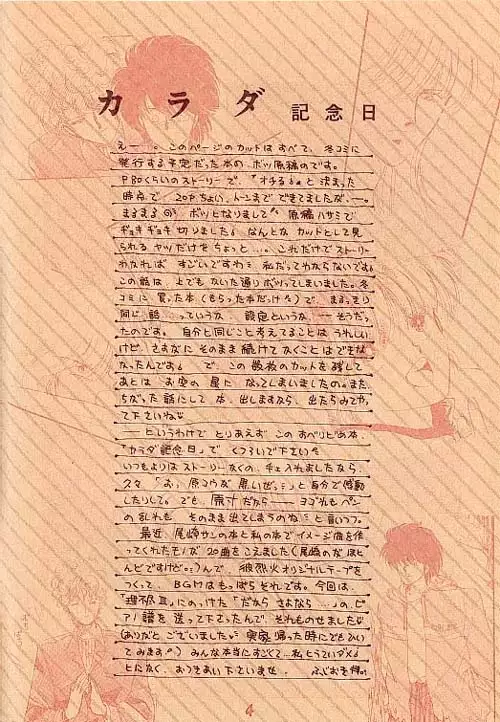 カラダ記念日
えー…。このページのカットはすべて、冬コミに
発行する予定だった本の、ボツ原稿のです。
P80くらいのストーリーで、「オチる」と決まった
時点で 20Pちょい、トーンまで できてましたが、―。
まるまる ボツとなりまして 原稿ハサミで
ギョキギョキ 切りました なんとか カットとして見
られる ヤツだけを ちょっと…。これだけで ストーリー
わかれば すごいですわ 私だってわからないです
この話は、上でも かいた通り ボツってしまいました。冬
コミに 買った本(もらった本だっけ)で まるっきり
同じ 話…っていうか、設定というか ― そうだっ
たのです。自分と同じこと考えてることは うれしい
けど、さすがに そのまま続けてかくことは できませ
なったんです で この数枚のカットを残して
あとは お空の 星に なってしまいましたの。また
ちがった 話にして 本、出しますなら、出たらみてやっ
て下さいね
―というわけで とりあえず この すべりどめ本、
「カラダ記念日」で くつろいで下さい
いつもよりは ストーリーなくの、チェ入れましたなら、
久々 「おっ 原コウが 黒いぜ」と自分で感動
したりして。でも 原寸だから―― ヨゴれもペン
の乱れも そのまま出てしまうのね と言いつつ。
最近、尾崎サンの本と私の本でイメージ曲を作
ってくれたモノが 20曲をこえました(尾崎のがほと
んどですけど)んで、彼烈火オリジナルテープを
つくって、BGMはもっぱら それです。今回は、
にのっけた「だから さよなら…」の、ピ
アノ譜を 送って下さったんで、それものせました
(ありがと ございました 実家帰った時にでもひい
てみます) みんな本当にすごくて…私とうていダメ
とにかく、おつきあい下さいませ。
4